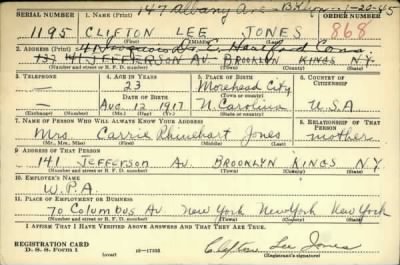 147 Albany Ave Bklyn 1-20-45
SERIAL NUMBER 1. NAME (Print) ORDER NUMBER
1195 CLIFTON LEE JONES 868
2. ADDRESS (Print) E. Hartford Conn
141 JEFFERSON AV BROOKLYN KINGS N.Y.
(Number and street or R. F. D. number) (Town) (County) (State)
3. TELEPHONE 4. AGE IN YEARS 5. PLACE OF BIRTH 6. COUNTRY OF CITIZENSHIP
— 23 Morehead City
DATE OF BIRTH (Town or county)
— Aug 12 1917 N. Carolina U.S.A
(Exchange) (Number) (Mo.) (Day) (Yr.) (State or country)
7. NAME OF PERSON WHO WILL ALWAYS KNOW YOUR ADDRESS 8. RELATIONSHIP OF THAT PERSON
Mrs. Carrie Rhinehart Jones mother
(Mr., Mrs., Miss) (First) (Middle) (Last)
9. ADDRESS OF THAT PERSON
141 JEFFERSON AV. BROOKLYN KINGS N.Y
(Number and street or R. F. D. number) (Town) (County) (State)
10. EMPLOYER'S NAME
W.P.A.
11. PLACE OF EMPLOYMENT OR BUSINESS
70 Columbus Av New York New York New York
(Number and street or R. F. D. number) (Town) (County) (State)
I AFFIRM THAT I HAVE VERIFIED ABOVE ANSWERS AND THAT THEY ARE TRUE.
REGISTRATION CARD
D. S. S. Form 1 (over) 16—17105 Clifton Lee Jones
(Registrant's signature)